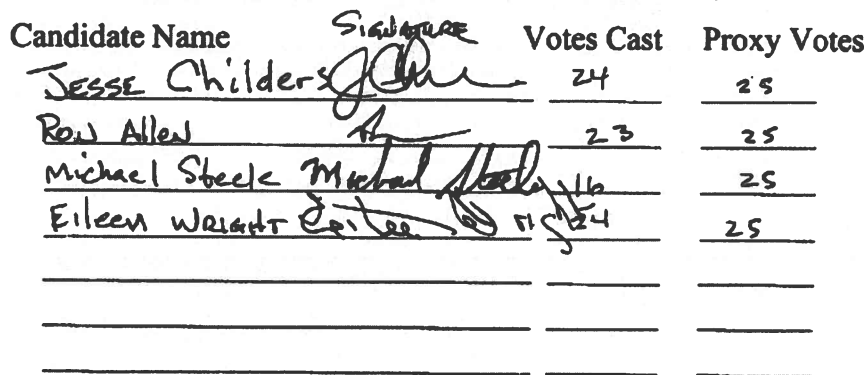 Candidate Name SIGNATURE Votes Cast Proxy Votes
JESSE Childers 24 25
Ron Allen 23 25
Michael Steele Michael Steele 16 25
Eileen WRIGHT Eileen 24 25